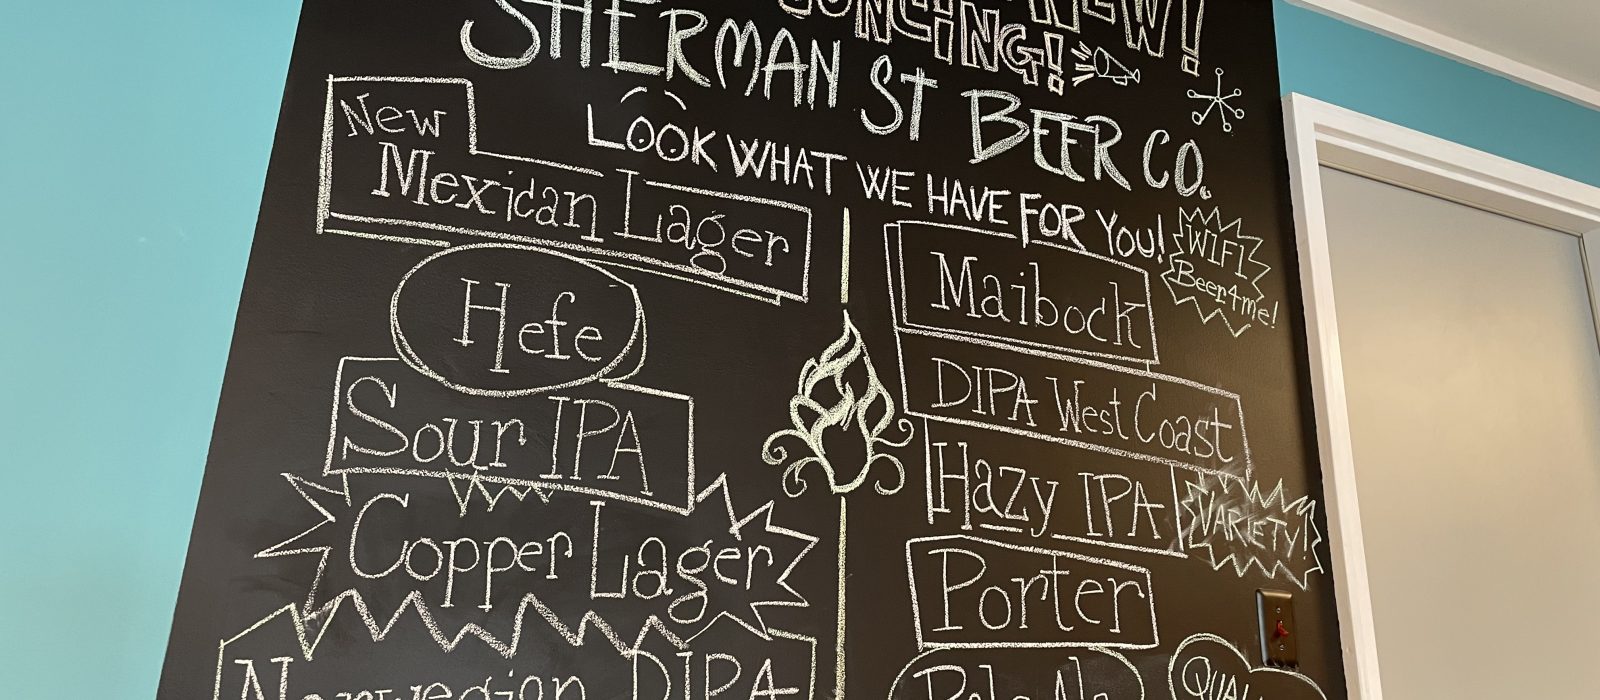 SHERMAN ST BEER CO.
LOOK WHAT WE HAVE FOR YOU!
New
Mexican Lager
Hefe
Sour IPA
Copper Lager
Norwegian DIPA
Maibock
WIFI
Beer4me!
DIPA West Coast
Hazy IPA
VARIETY!
Porter
Pale Ale